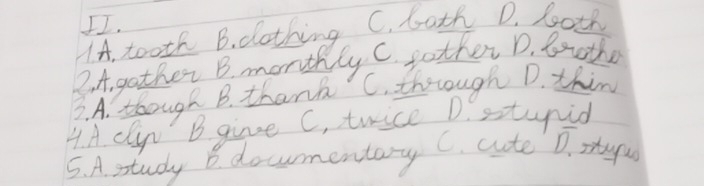 II.
1.A. tooth B. clothing C. bath D. both
2.A. gather B. monthly C. father D. brothe
3.A. though B. thank C. through D. thin
4.A. clip B give C. twice D. stupid
5.A. study B. documentary C. cute D. stupid